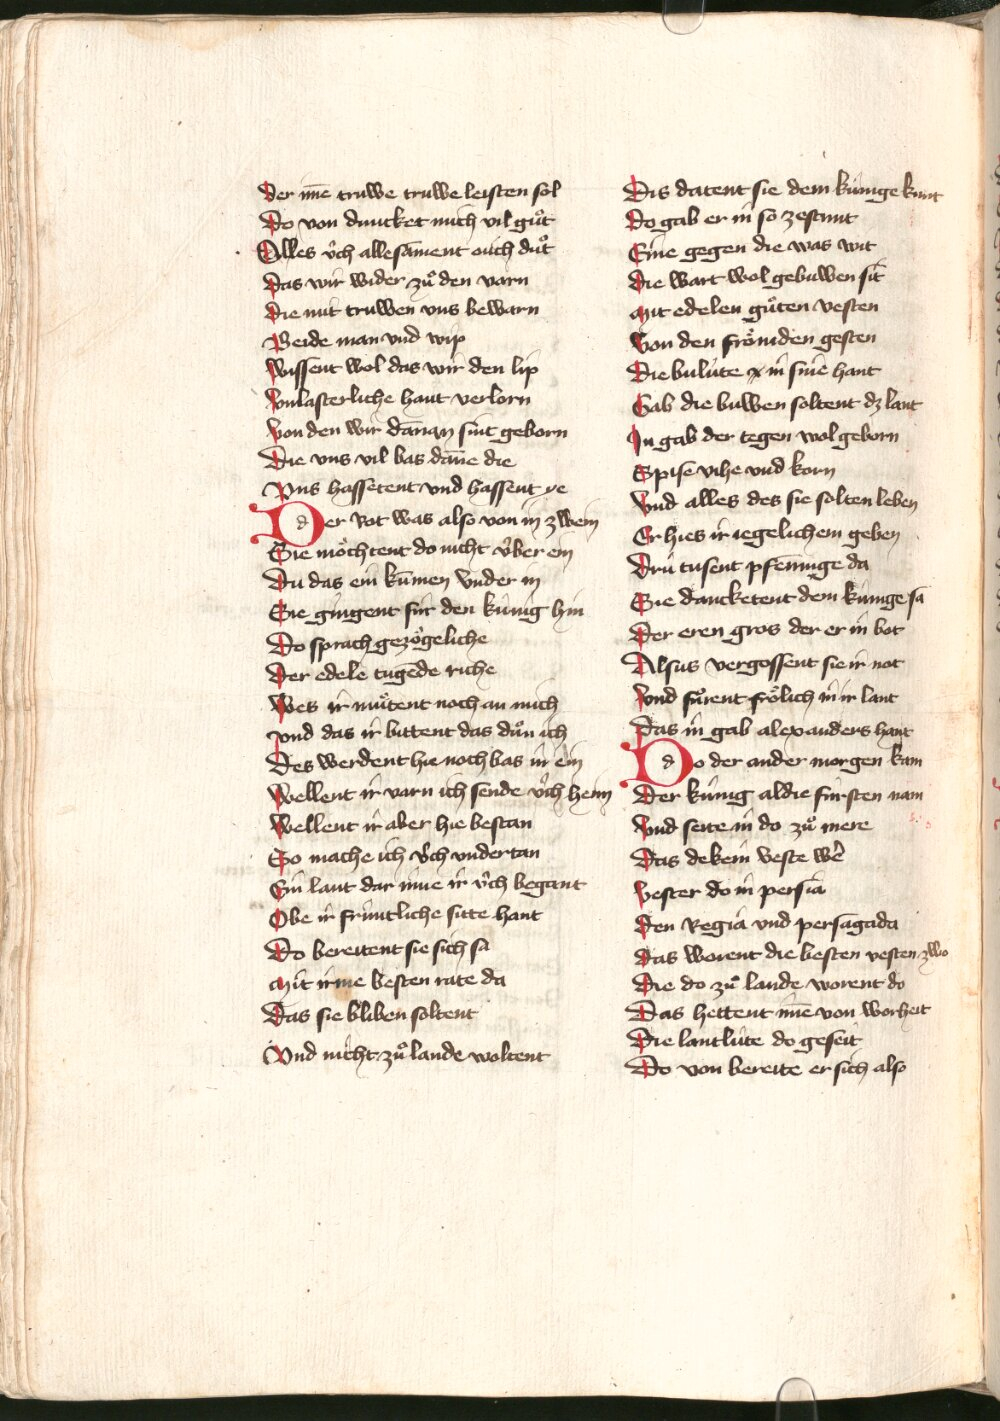 Der im̄e truwe truwe leisten sol
Do von duncket mich vil gůt
Alles v́ch allesāment ouch důt
Das wir wider zů den varn
Die mit truwen vns bewarn
Beide man vnd wip
Wissent wol das wir den lip
Vnlasterliche hant verlorn
Von den wir dānan sint geborn
Die vns vil bas dān̄e die
Vns hassetent vnd hassent ye
Der Rot was also von in zwein
Sie mo̊chtent do nicht v́ber ein
Du das ein kūmen vnder in
Sie gingent fúr den kúnig hin
Do sprach gezo̊geliche
Der edele tugēde riche
Wes ir můtent noch an mich
Vnd das ir bittent das důn ich
Des werdent hie noch bas in ein
Wellent ir varn ich sende v́ch heim
Wellent ir aber hie bestan
So mache ich v́ch vndertan
Ein lant dar inne ir v́ch begant
Obe ir frúntliche sitte hant
Do bereitent sie sich sa
Mit irme besten rate da
Das sie bliben soltent
Vnd nicht zů lande woltent
Dis datent sie dem kúnige kunt
Do gab er in so zestunt
Eine gegen die was wit
Die wart wol gebuwen sit
Mit edelen gůten vesten
Von den fro̊mden gesten
Die bulúte in sine hant
Gab die buwen soltent dz lant
In gab der tegen wol geborn
Spise vihe vnd korn
Vnd alles des sie solten leben
Er hies ir iegelichem geben
Drú tusent pfenninge da
Sie danckētent dem kúnige sa
Der eren gros der er in bot
Alsus vergossent sie ir not
Vnd fůrent fro̊lich in ir lant
Das in gab alexanders hant
Do der ander morgen kam
Der kúnig aldie fúrsten nam
Vnd seite in do zů mere
Das dekein veste wē
Vester do in persia
Den Regia vnd persagada
Das worent die besten vesten zwo
Die do zů lande worent do
Das hettent im̄e von worheit
Die lantlúte do geseit
Do von bereite er sich also